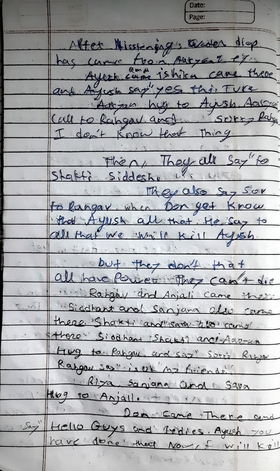 Date:
Page:
After Lisstening, Water drop
has came from Aaryan's eye.
Ayush and ishika came there
and Ayush say "yes this Ture
Aaryan hug to Ayush, Aaryan
Call to Rahgav and Sorry Rahgav
I don't know that Thing
Then, They all Say "to
Shakti Siddesh.
They also Say Sor
to Rangav. when Don get know
that Ayush all that. He say to
all that we will kill Ayush
but they don't that
all have Power. They can't die
Rahgav and Anjali came there
Siddhant and Sanjana also came
there. Shakti and Sara also came
there. Siddhant Shakti and Aaryan
Hug to Rahgav and say" Sorry Rahgav
Rahgav say" is ok my friends.
Riya Sanjana and Sara
Hug to Anjali.
Don came There and
Say" Hello Guys and Ladies. Ayush you
have done that Now I will kill